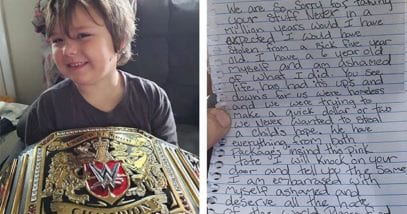 W
CHAMPION
We are so sorry for taking
your stuff Never in a
million years would I have
expected I would have
stolen from a sick five year
old. I have a 4 year old
myself and I am ashamed
of what I did. You see
life has its ups and
downs for us were homeless
and we were trying to
make a quick dollar or two
we never wanted to steal
a child's hope. We have
everything from both
Packages and the pink
tote I will knock on your
door and tell you the same
I am embarrassed with
myself ashamed and
deserve all the hate
of the world